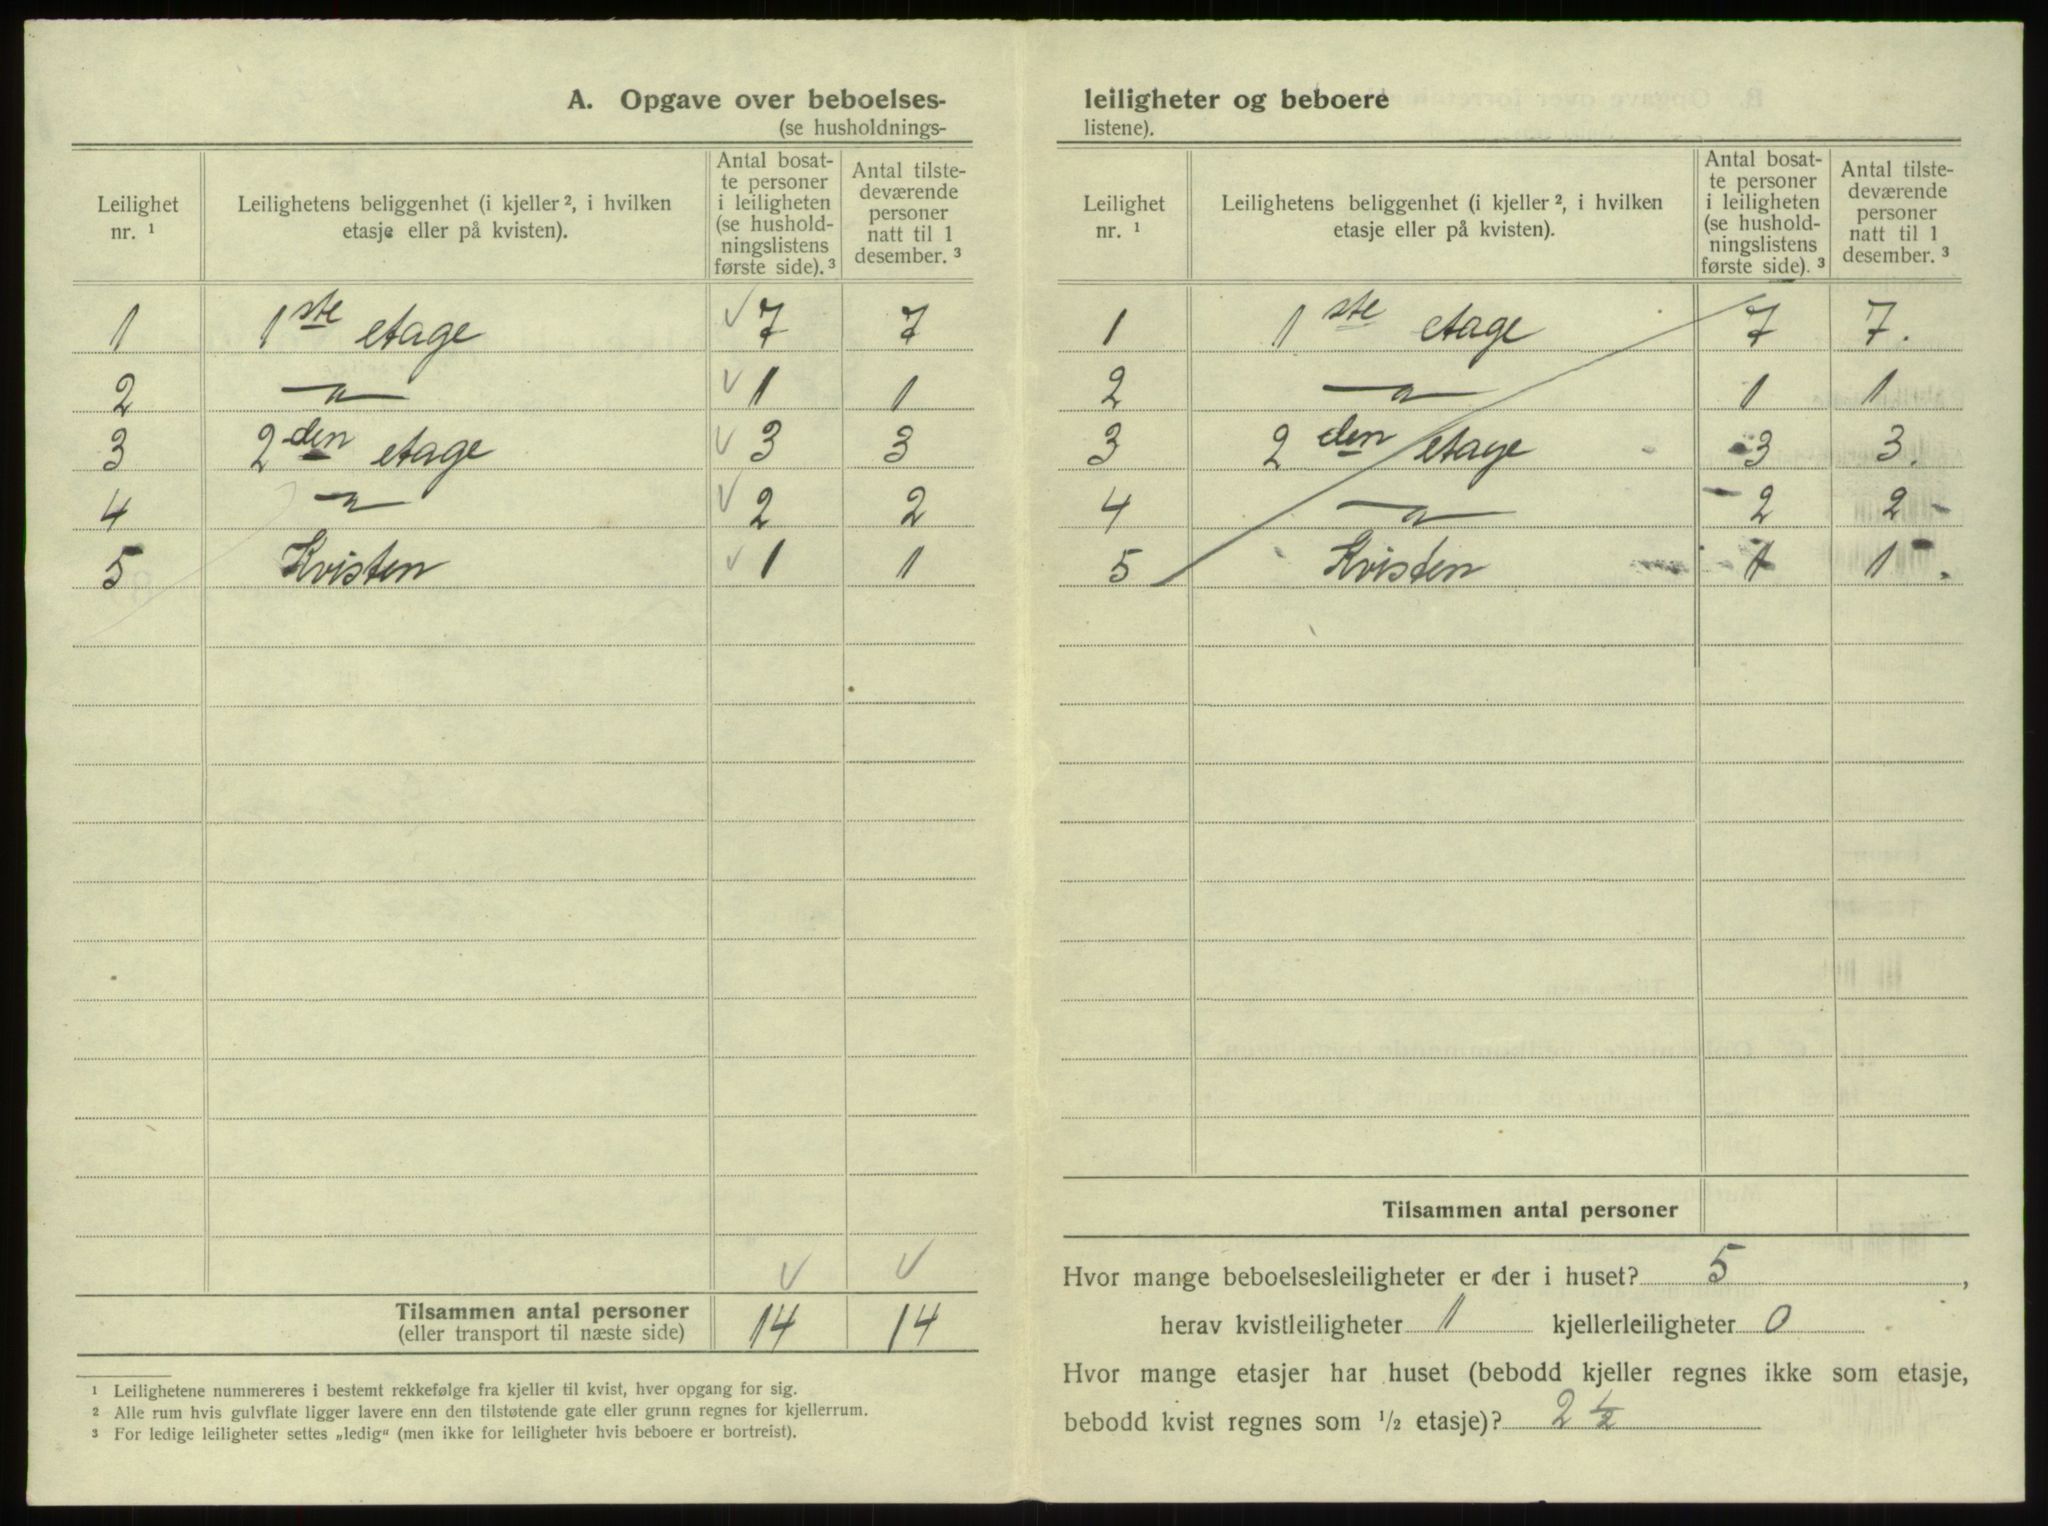 A. Opgave over beboelses-
(se husholdnings-
Leilighet nr. ¹ | Leilighetens beliggenhet (i kjeller ², i hvilken etasje eller på kvisten). | Antal bosatte personer i leiligheten (se husholdningslistens første side). ³ | Antal tilstedeværende personer natt til 1 desember. ³
1 1ste etage √ 7 7
2 —"— √ 1 1
3 2den etage √ 3 3
4 —"— √ 2 2
5 Kvisten √ 1 1
√ √
Tilsammen antal personer 14 14
(eller transport til næste side)
¹ Leilighetene nummereres i bestemt rekkefølge fra kjeller til kvist, hver opgang for sig.
² Alle rum hvis gulvflate ligger lavere enn den tilstøtende gate eller grunn regnes for kjellerrum.
³ For ledige leiligheter settes „ledig“ (men ikke for leiligheter hvis beboere er bortreist).
leiligheter og beboere
listene).
Leilighet nr. ¹ | Leilighetens beliggenhet (i kjeller ², i hvilken etasje eller på kvisten). | Antal bosatte personer i leiligheten (se husholdningslistens første side). ³ | Antal tilstedeværende personer natt til 1 desember. ³
1 1ste etage 7 7.
2 —"— 1 1
3 2den etage 3 3.
4 —"— 2 2
5 Kvisten 1 1.
Tilsammen antal personer
Hvor mange beboelsesleiligheter er der i huset? 5,
herav kvistleiligheter 1 kjellerleiligheter 0
Hvor mange etasjer har huset (bebodd kjeller regnes ikke som etasje,
bebodd kvist regnes som ½ etasje)? 2 ½